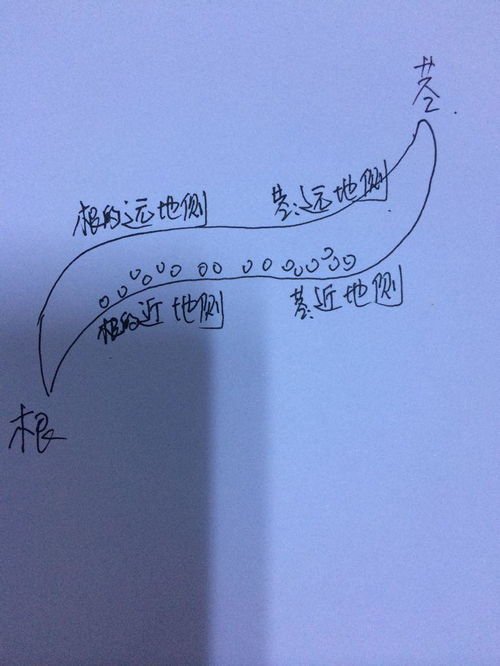 茎
根的远地侧
茎远地侧
根的近地侧
茎近地侧
根